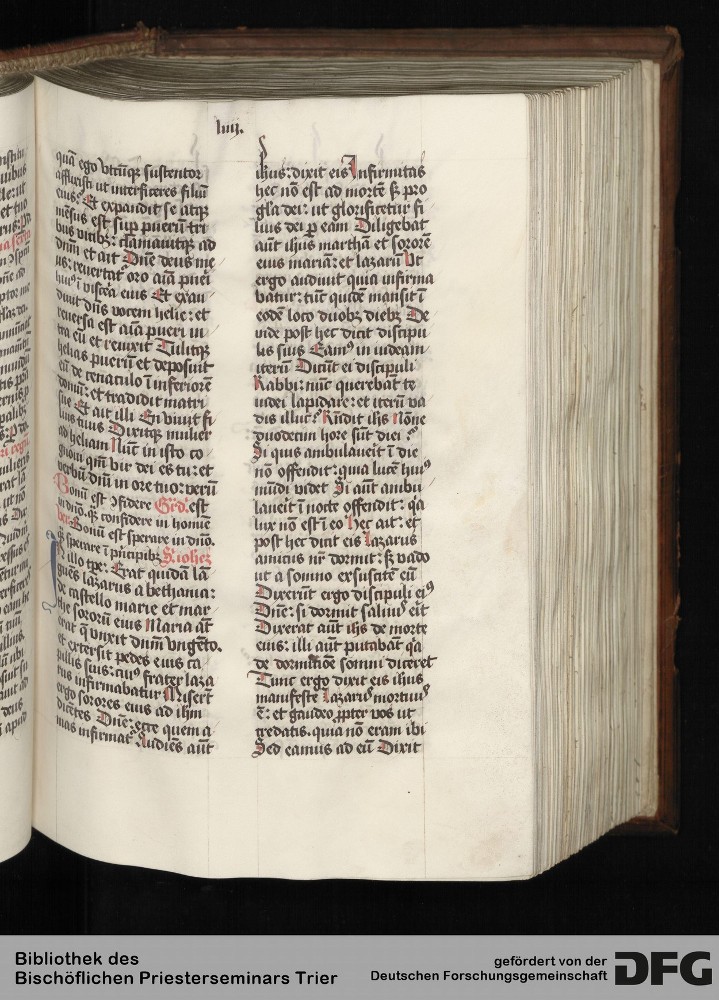 liiij.
quā ego vtcūq̄ sustentor
afflixisti ut interficeres filiū
eius: Et expandit se atq̄
mēsus est sup pueru tri
bus vicibꝫ: clamauitq̄ ad
dnm̄ et ait Dn̄e deus me
us: reuertat᷑ oro aīa pueri
huiꝰ ī viscera eius Et exau
diuit dn̄s vocem helie: et
reuersa est aīa pueri in
tra eū et reuixit Tulitq̄
helias puerū et deposuit
eū de cenaculo ī inferiorē
domū: et tradidit matri
sue Et ait illi En viuit fi
lius tuus Dixitq̄ mulier
ad heliam Nūc in isto co
gnoui qm̄ vir dei es tu: et
verbū dn̄i in ore tuo: verū
Bonū est ꝯfidere Grd. est
in dn̄o. q̄ confidere in homīe
ver. Bonū est sperare in dn̄o.
q̄ sperare ī pn̄cipibꝫ S. iohēꝫ
In illo tp̄e: Erat quidā lā
guēs lazarus a bethania:
de castello marie et mar
the sororū eius Maria aūt
erat q̄ vnxit dnm̄ vngēto.
et extersit pedes eius ca
pillis suis: cuiꝰ frater laza
rus infirmabatur Miserūt
ergo sorores eius ad ihm̄
dicētes Dn̄e: ecce quem a
mas infirmat᷑ Audiēs aūt
ihūs: dixit eis Infirmitas
hec nō est ad mortē sꝫ pro
gl̄a dei: ut glorificetur fi
lius dei ꝑ eam Diligebat
aūt ihūs marthā et sororē
eius mariā: et lazarū Ut
ergo audiuit quia infirma
batur: tūc quidē mansit ī
eodē loco duobꝫ diebꝫ De
inde post hec dicit discipu
lis suis Eamꝰ in iudeam
iterū Dicūt ei discipuli
Rabbi: nūc querebāt te
iudei lapidare: et iterū va
dis illuc? Rn̄dit ihs̄ Nōne
duodecim hore sūt diei?
Si quis ambulauerit ī die
nō offendit: quia lucē huiꝰ
mūdi videt Si aūt ambu
lauerit ī nocte offendit: q̄a
lux nō est ī eo Hec ait: et
post hec dicit eis Lazarus
amicus nr̄ dormit: sꝫ vado
ut a somno exsuscitē eū
Dixerūt ergo discipuli eiꝰ
Dn̄e: si dormit saluꝰ erit
Dixerat aūt ihs̄ de morte
eius: illi aūt putabāt q̄a
de dormitiōe somni diceret
Tunc ergo dixit eis ihūs
manifeste Lazarꝰ mortuꝰ
ē: et gaudeo ꝓpter vos ut
credatis. quia nō eram ibi
Sed eamus ad eū Dixit
Bibliothek des
Bischöflichen Priesterseminars Trier
gefördert von der
Deutschen Forschungsgemeinschaft
DFG